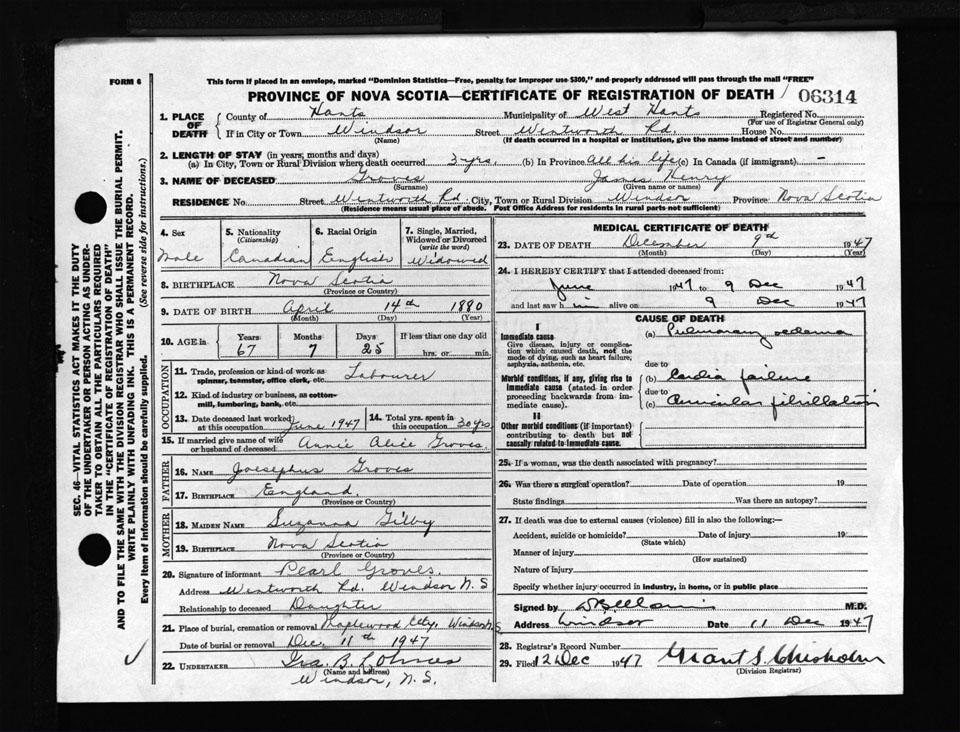 FORM 6
This form if placed in an envelope, marked "Dominion Statistics—Free, penalty for improper use $300," and properly addressed will pass through the mail "FREE"
PROVINCE OF NOVA SCOTIA—CERTIFICATE OF REGISTRATION OF DEATH
06314
1. PLACE OF DEATH
County of Hants Municipality of West Hants Registered No.
(For use of Registrar General only)
If in City or Town Windsor Street Wentworth Rd. House No.
(Name) (If death occurred in a hospital or institution, give the name instead of street and number)
2. LENGTH OF STAY (in years, months and days)
(a) In City, Town or Rural Division where death occurred 3 yrs. (b) In Province All his life (c) In Canada (if immigrant) —
3. NAME OF DECEASED Groves James Henry
(Surname) (Given name or names)
RESIDENCE No. Street Wentworth Rd City, Town or Rural Division Windsor Province Nova Scotia
(Residence means usual place of abode. Post Office Address for residents in rural parts not sufficient)
4. Sex
Male
5. Nationality
(Citizenship)
Canadian
6. Racial Origin
English
7. Single, Married, Widowed or Divorced
(write the word)
Widowed
8. BIRTHPLACE Nova Scotia
(Province or Country)
9. DATE OF BIRTH April 14th 1880
(Month) (Day) (Year)
10. AGE in
Years Months Days If less than one day old
67 7 25 hrs. or min.
OCCUPATION
11. Trade, profession or kind of work as spinner, teamster, office clerk, etc. Labourer
12. Kind of industry or business, as cotton-mill, lumbering, bank, etc.
13. Date deceased last worked at this occupation June 1947
14. Total yrs. spent in this occupation 30 yrs.
15. If married give name of wife or husband of deceased Annie Alice Groves.
FATHER
16. NAME Joesephus Groves
17. BIRTHPLACE England.
(Province or Country)
MOTHER
18. MAIDEN NAME Suzanna Gilby
19. BIRTHPLACE Nova Scotia
(Province or Country)
20. Signature of informant Pearl Groves.
Address Wentworth Rd. Windsor N.S
Relationship to deceased Daughter
21. Place of burial, cremation or removal Maplewood Windsor N.S
Date of burial or removal Dec. 11th 1947
22. UNDERTAKER Ira. B.
(Name and address)
Windsor, N.S.
MEDICAL CERTIFICATE OF DEATH
23. DATE OF DEATH December 9th 1947
(Month) (Day) (Year)
24. I HEREBY CERTIFY that I attended deceased from:
June 1947 to 9 Dec 1947
and last saw him alive on 9 Dec 1947
CAUSE OF DEATH
I
Immediate cause
Give disease, injury or complication which caused death, not the mode of dying, such as heart failure, asphyxia, asthenia, etc.
(a) Pulmonary oedema
due to
Morbid conditions, if any, giving rise to immediate cause (stated in order proceeding backwards from immediate cause).
(b) Cardia failure
due to
(c) Auricular fibrillation
II
Other morbid conditions (if important) contributing to death but not causally related to immediate cause.
25. If a woman, was the death associated with pregnancy?
26. Was there a surgical operation? Date of operation 19
State findings Was there an autopsy?
27. If death was due to external causes (violence) fill in also the following:—
Accident, suicide or homicide? Date of injury 19
(State which)
Manner of injury
(How sustained)
Nature of injury
Specify whether injury occurred in industry, in home, or in public place
Signed by M.D.
Address Windsor Date 11 Dec 1947
28. Registrar's Record Number
29. Filed 12 Dec 1947 Grant S. Chisholm
(Division Registrar)
SEC. 46—VITAL STATISTICS ACT MAKES IT THE DUTY
OF THE UNDERTAKER OR PERSON ACTING AS UNDER-
TAKER TO OBTAIN ALL THE PARTICULARS REQUIRED
IN THE "CERTIFICATE OF REGISTRATION OF DEATH"
AND TO FILE THE SAME WITH THE DIVISION REGISTRAR WHO SHALL ISSUE THE BURIAL PERMIT.
WRITE PLAINLY WITH UNFADING INK. THIS IS A PERMANENT RECORD.
Every item of information should be carefully supplied. (See reverse side for instructions.)